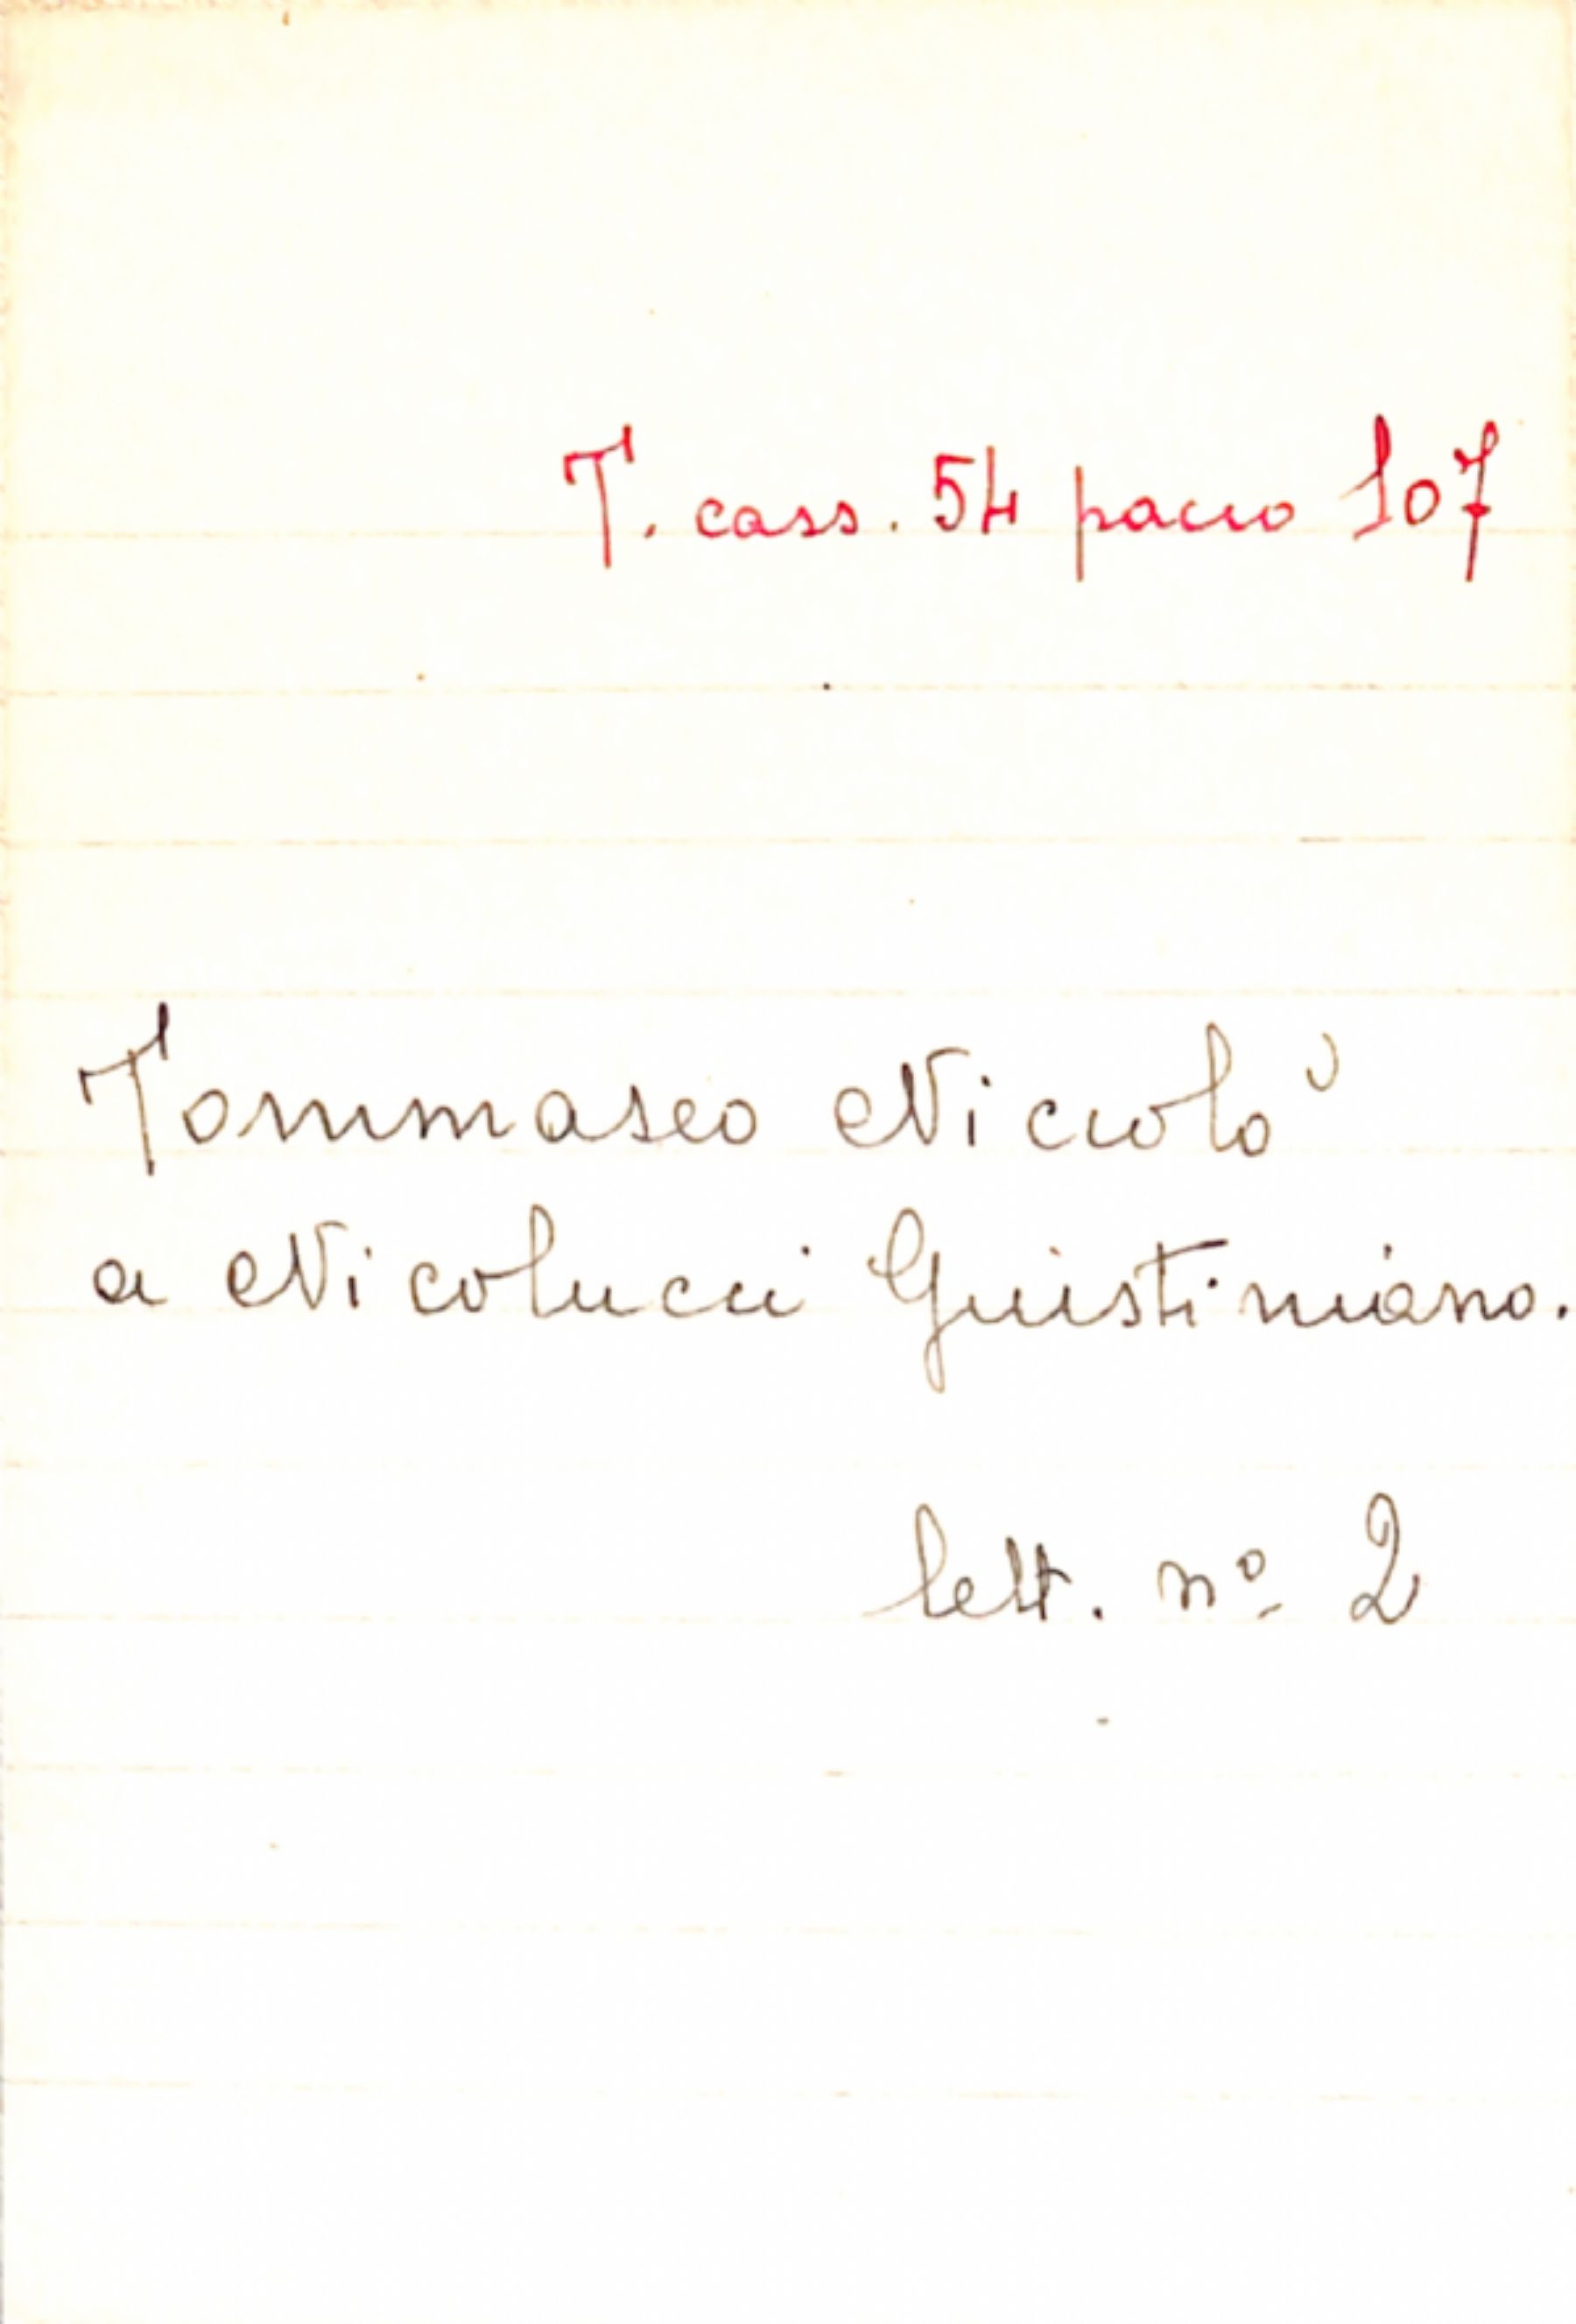 T. cass. 54 pacco 107
Tommaseo Niccolò
a Nicolucci Giustiniano.
lett. nº 2